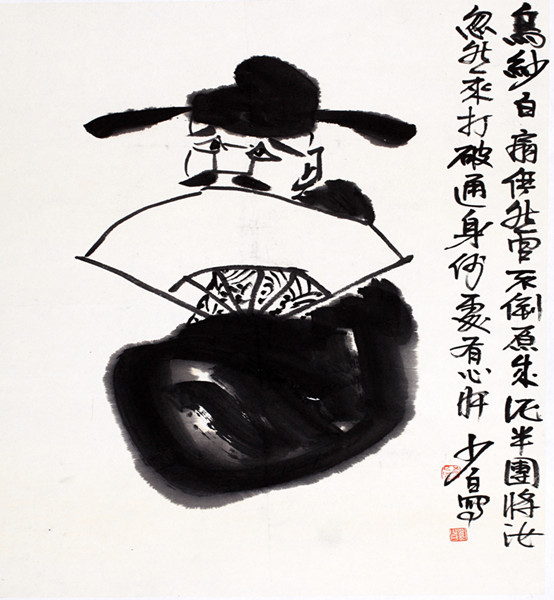 烏紗白扇儼然官不倒原來泥半團將汝
忽然來打破通身何處有心肝 少白寫